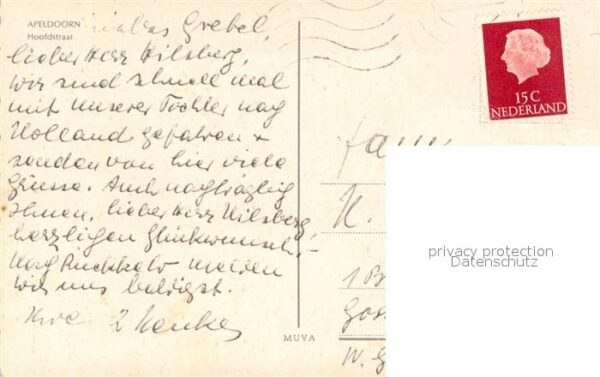 APELDOORN
Hoofdstraat
Grebel,
lieber Herr Hilsberg,
wir sind schnell mal
mit unserer Tochter nach
Holland gefahren +
senden von hier viele
Grüsse. Auch nachträglich
Ihnen, lieber Herr Hilsberg,
herzlichen Glückwunsch. –
Nach Rückkehr melden
wir uns baldigst.
Ihre 2
MUVA
15 C
NEDERLAND
Fam
H.
1 B
W. G
privacy protection
Datenschutz